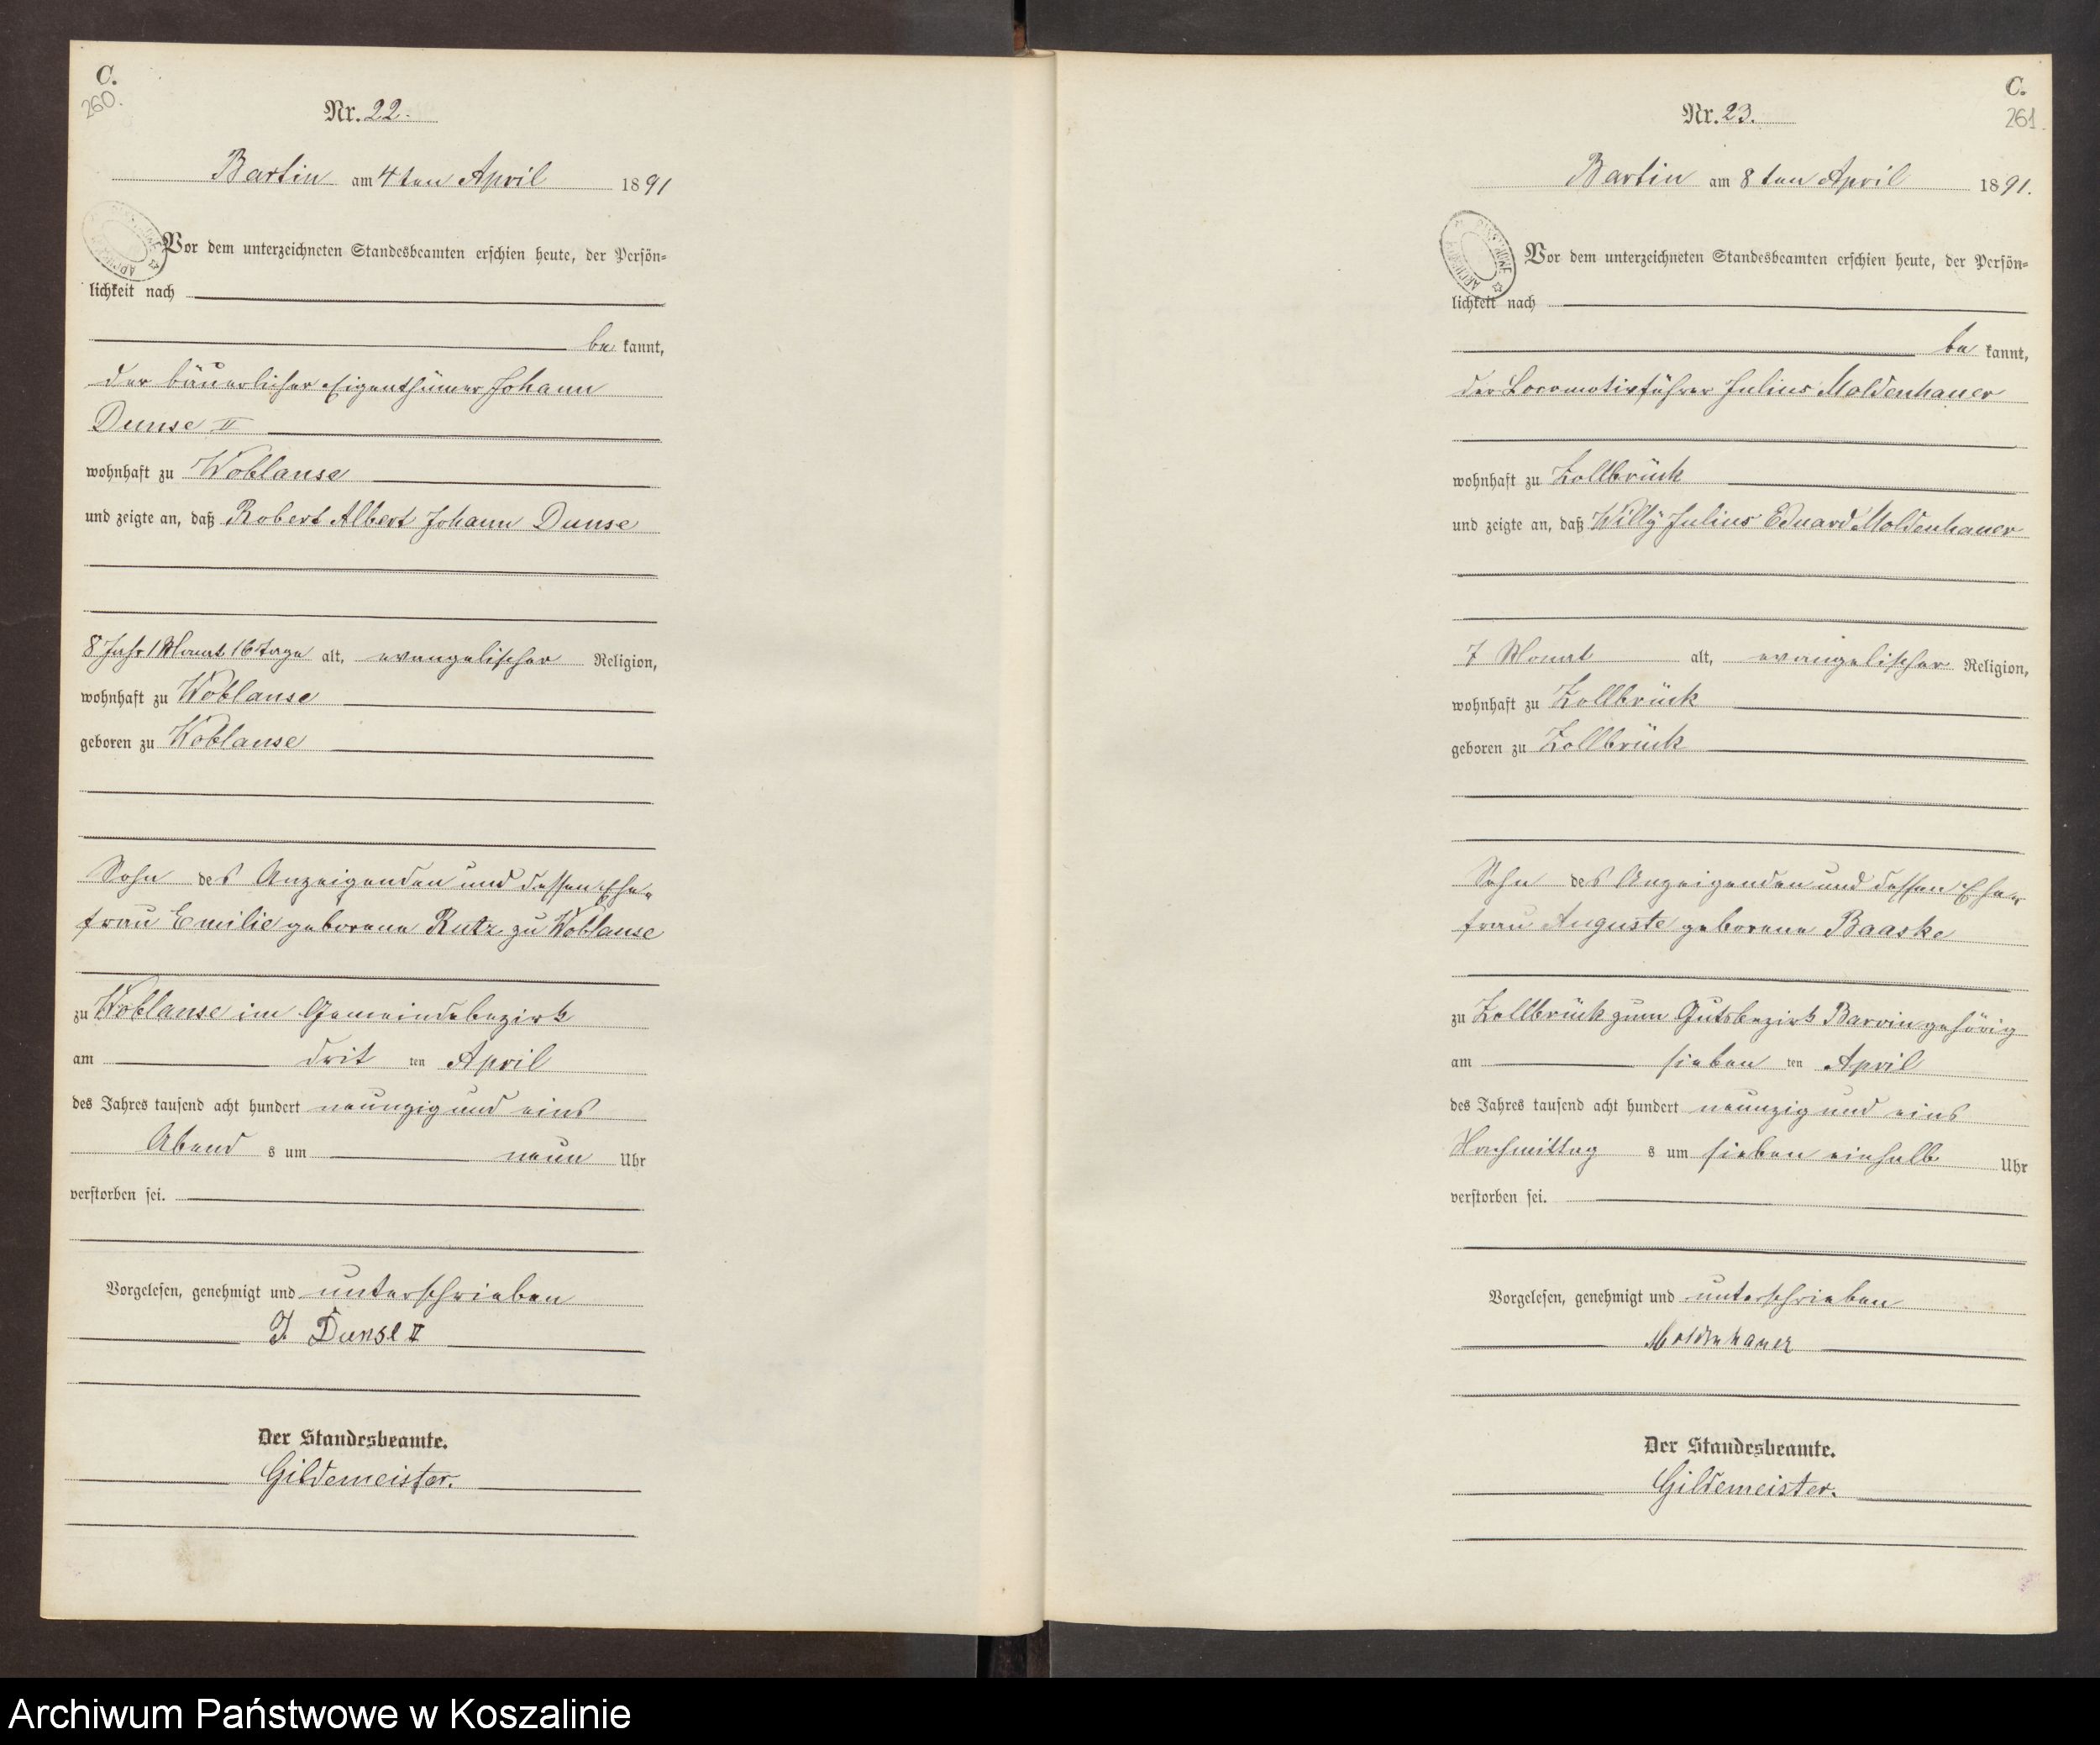 C.
260.
Nr. 22.
Bartin am 4ten April 1891
Vor dem unterzeichneten Standesbeamten erschien heute, der Persön-
lichkeit nach
bekannt,
der bäuerlicher Eigenthümer Johann
Dunse II
wohnhaft zu Woblanse
und zeigte an, daß Robert Albert Johann Dunse
8 Jahr 1 Monat 16 Tage alt, evangelischer Religion,
wohnhaft zu Woblanse
geboren zu Woblanse
Sohn des Anzeigenden und dessen Ehe-
frau Emilie geborene Rutz zu Woblanse
zu Woblanse im Gemeindebezirk
am drit ten April
des Jahres tausend acht hundert neunzig und eins
Abend s um neun Uhr
verstorben sei.
Vorgelesen, genehmigt und unterschrieben
J. Dunse II
Der Standesbeamte.
Gildemeister.
C.
261.
Nr. 23.
Bartin am 8ten April 1891.
Vor dem unterzeichneten Standesbeamten erschien heute, der Persön-
lichkeit nach
bekannt,
der Locomotivführer Julius Moldenhauer
wohnhaft zu Zollbrück
und zeigte an, daß Willy Julius Eduard Moldenhauer
7 Monat alt, evangelischer Religion,
wohnhaft zu Zollbrück
geboren zu Zollbrück
Sohn des Anzeigenden und dessen Ehe-
frau Auguste geborene Baaske
zu Zollbrück zum Gutsbezirk Barvin gehörig
am sieben ten April
des Jahres tausend acht hundert neunzig und eins
Nachmittag s um sieben einhalb Uhr
verstorben sei.
Vorgelesen, genehmigt und unterschrieben
Moldenhauer
Der Standesbeamte.
Gildemeister.
Archiwum Państwowe w Koszalinie